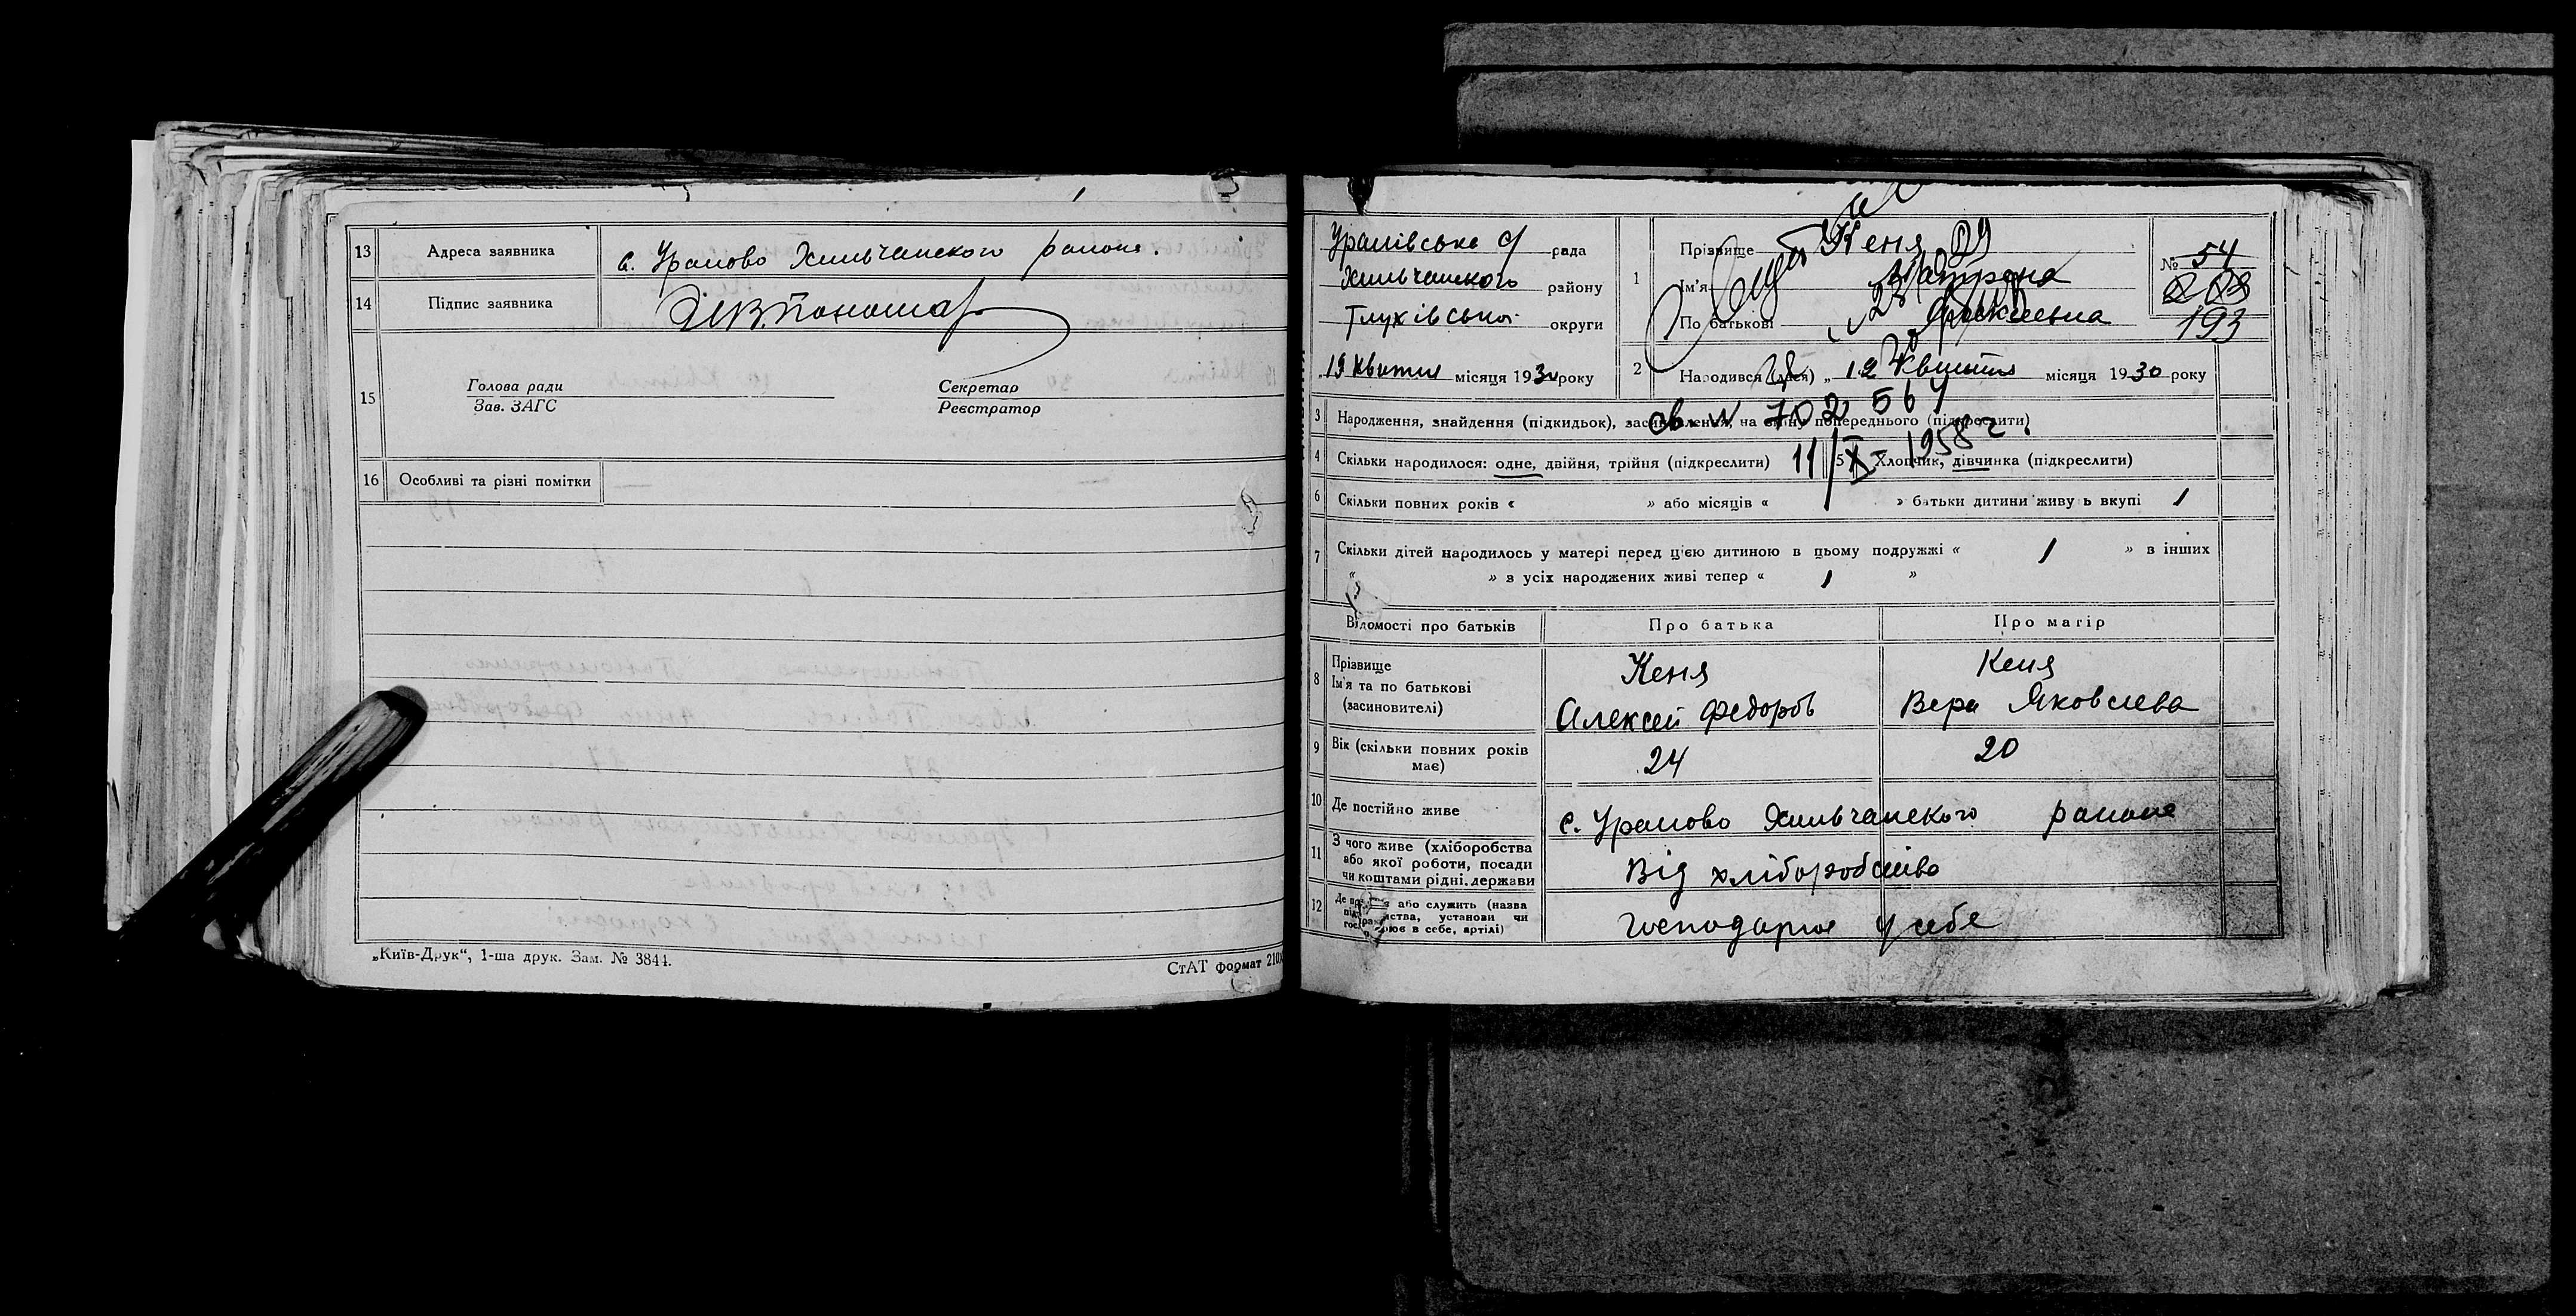 13 Адреса заявника с. Уралово Хильчанского района.
14 Підпис заявника
15 Голова ради Секретар
Зав. ЗАГС Реєстратор
16 Особливі та різні помітки — —
„Київ-Друк“, 1-ша друк. Зам. № 3844.
СтАТ формат 210
Уралівська с/ рада
Хильчанского району
Глухівська округи
19 квітня місяця 1930 року
1 Прізвище Кеня
Ім'я Матрона
По батькові
№ 54
193
2 Народився (лася) „ 12 квітня місяця 1930 року
3 Народження, знайдення (підкидьок), засиновлення, на зміну попереднього (підкреслити)
св. № 702564
4 Скільки народилося: одне, двійня, трійня (підкреслити) 5 Хлопчик, дівчинка (підкреслити)
11/X - 1958 г.
6 Скільки повних років « » або місяців « » батьки дитини живуть вкупі 1
7 Скільки дітей народилось у матері перед цією дитиною в цьому подружжі « 1 » в інших
« » з усіх народжених живі тепер « 1 »
Відомості про батьків Про батька Про матір
8 Прізвище
Ім'я та по батькові
(засиновителі)
Кеня Кеня
Алексей Федоров Вера Яковлева
9 Вік (скільки повних років має) 24 20
10 Де постійно живе с. Уралово Хильчанского района
11 З чого живе (хліборобства
або якої роботи, посади
чи коштами рідні, держави
Від хліборобства
12 або служить (назва
установи чи
в себе, артілі)
господарює у себе